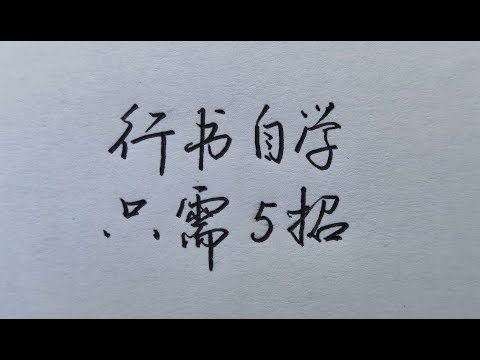 行书自学
只需5招